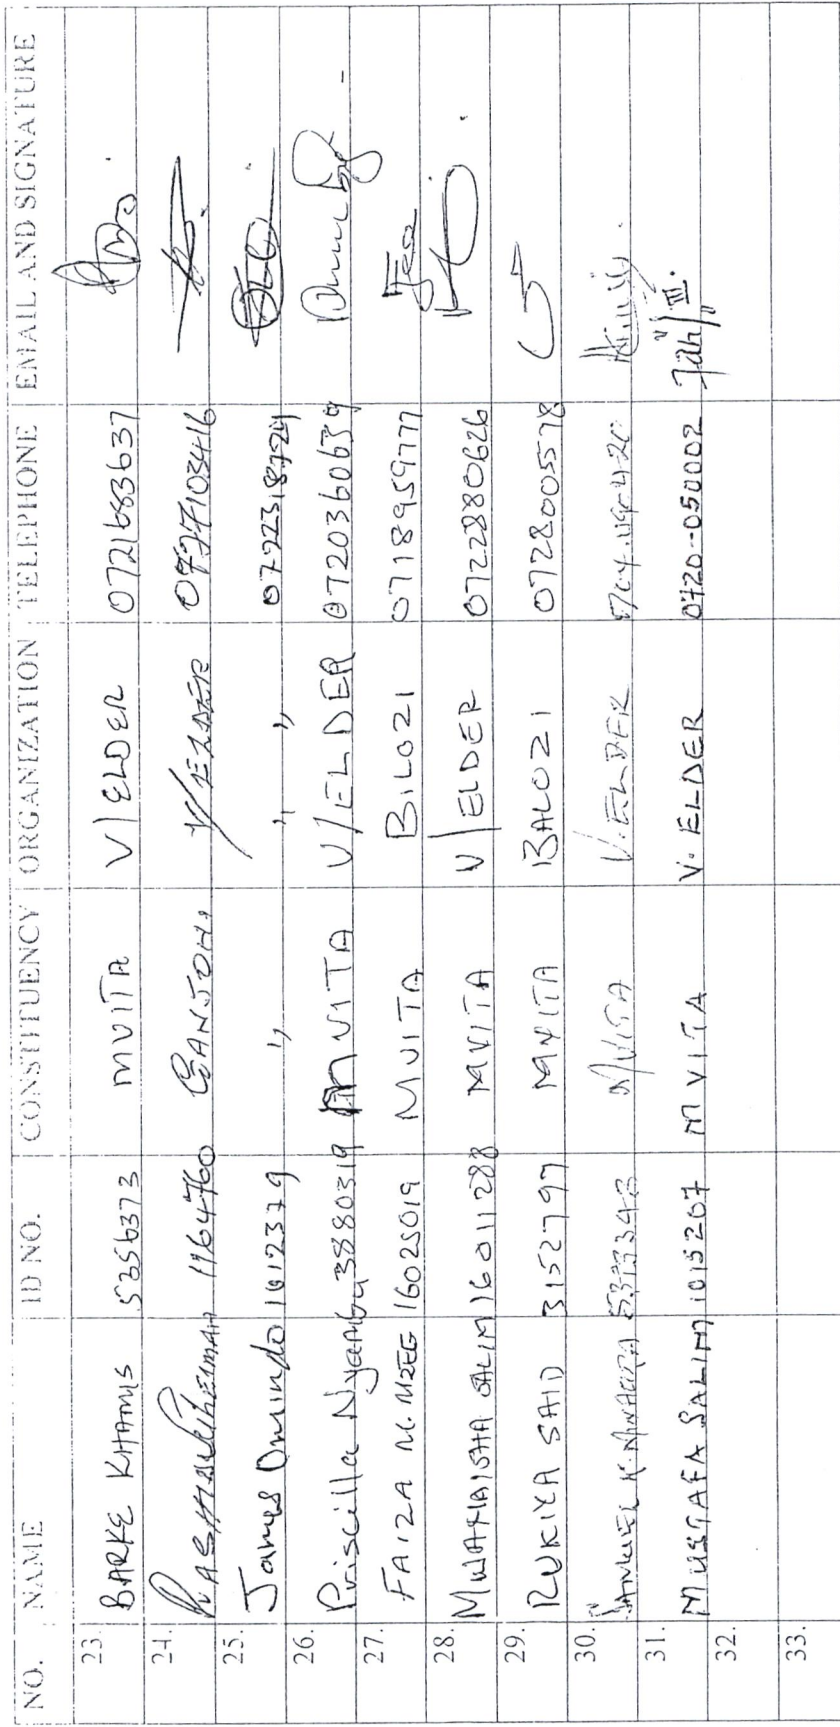 NO. NAME ID NO. CONSTITUENCY ORGANIZATION TELEPHONE EMAIL AND SIGNATURE
23. BARKE KHAMIS 5356373 MVITA V/ELDER 0721683637
24. 1164760 V/ELDER
25. James Omindo 1012379 ,, ,, ,,
26. Priscilla Nyambu 3880319 MVITA V/ELDER 0720360639
27. FAIZA M. MZEE 16025019 MVITA BILOZI 0718959777
28. MWANAISHA SALIM 16011288 MVITA V/ELDER 0722880626
29. RUKIYA SAID 3152797 MVITA BALOZI 0728005578
30. MVITA V. ELDER
31. MUSTAFA SALIM 1015207 MVITA V. ELDER 0720-050002
32.
33.